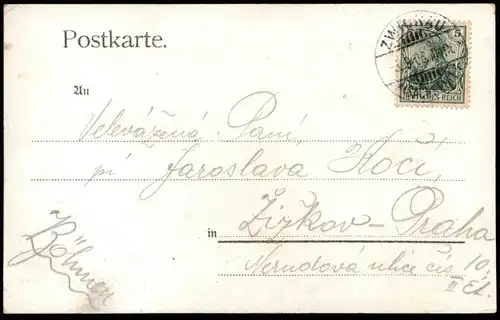 Postkarte.
ZWICKAU
5
DEUTSCHES REICH
An
Velevážená Paní,
pí Jaroslava Kočí,
in Žižkov-Praha
Nerudová ulice čís. 10.
II Et.
Böhmen